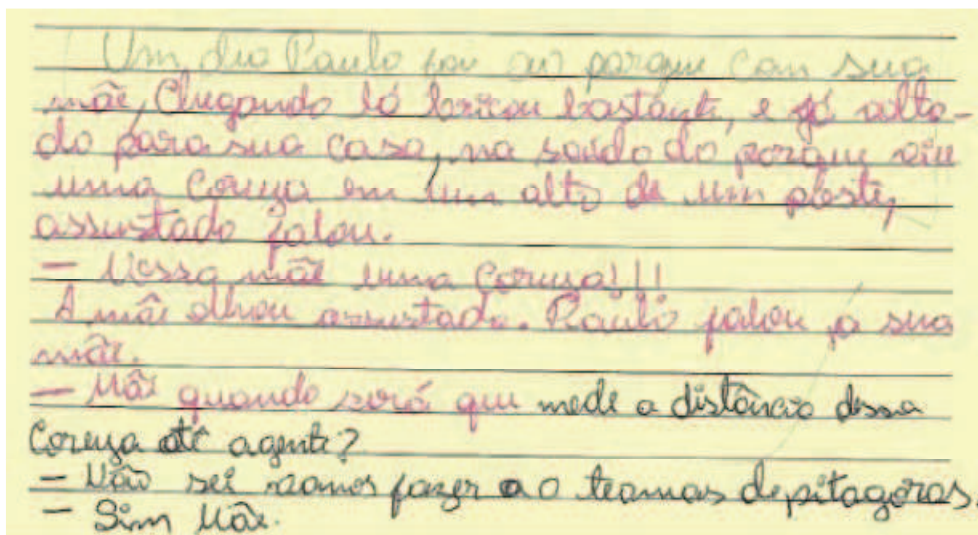 Um dia Paulo foi ao parque com sua
mãe, Chegando lá brincou bastante, e já volta-
do para sua casa, na saída do parque viu
uma Coruja em um alto de um poste,
assustado falou.
- Nossa mãe uma Coruja!!!
A mãe olhou assustada. Paulo falou a sua
mãe.
- Mãe quando será que mede a distância dessa
Coruja até agente?
- Não sei vamos fazer a o teamas de pitagoras.
- Sim Mãe.